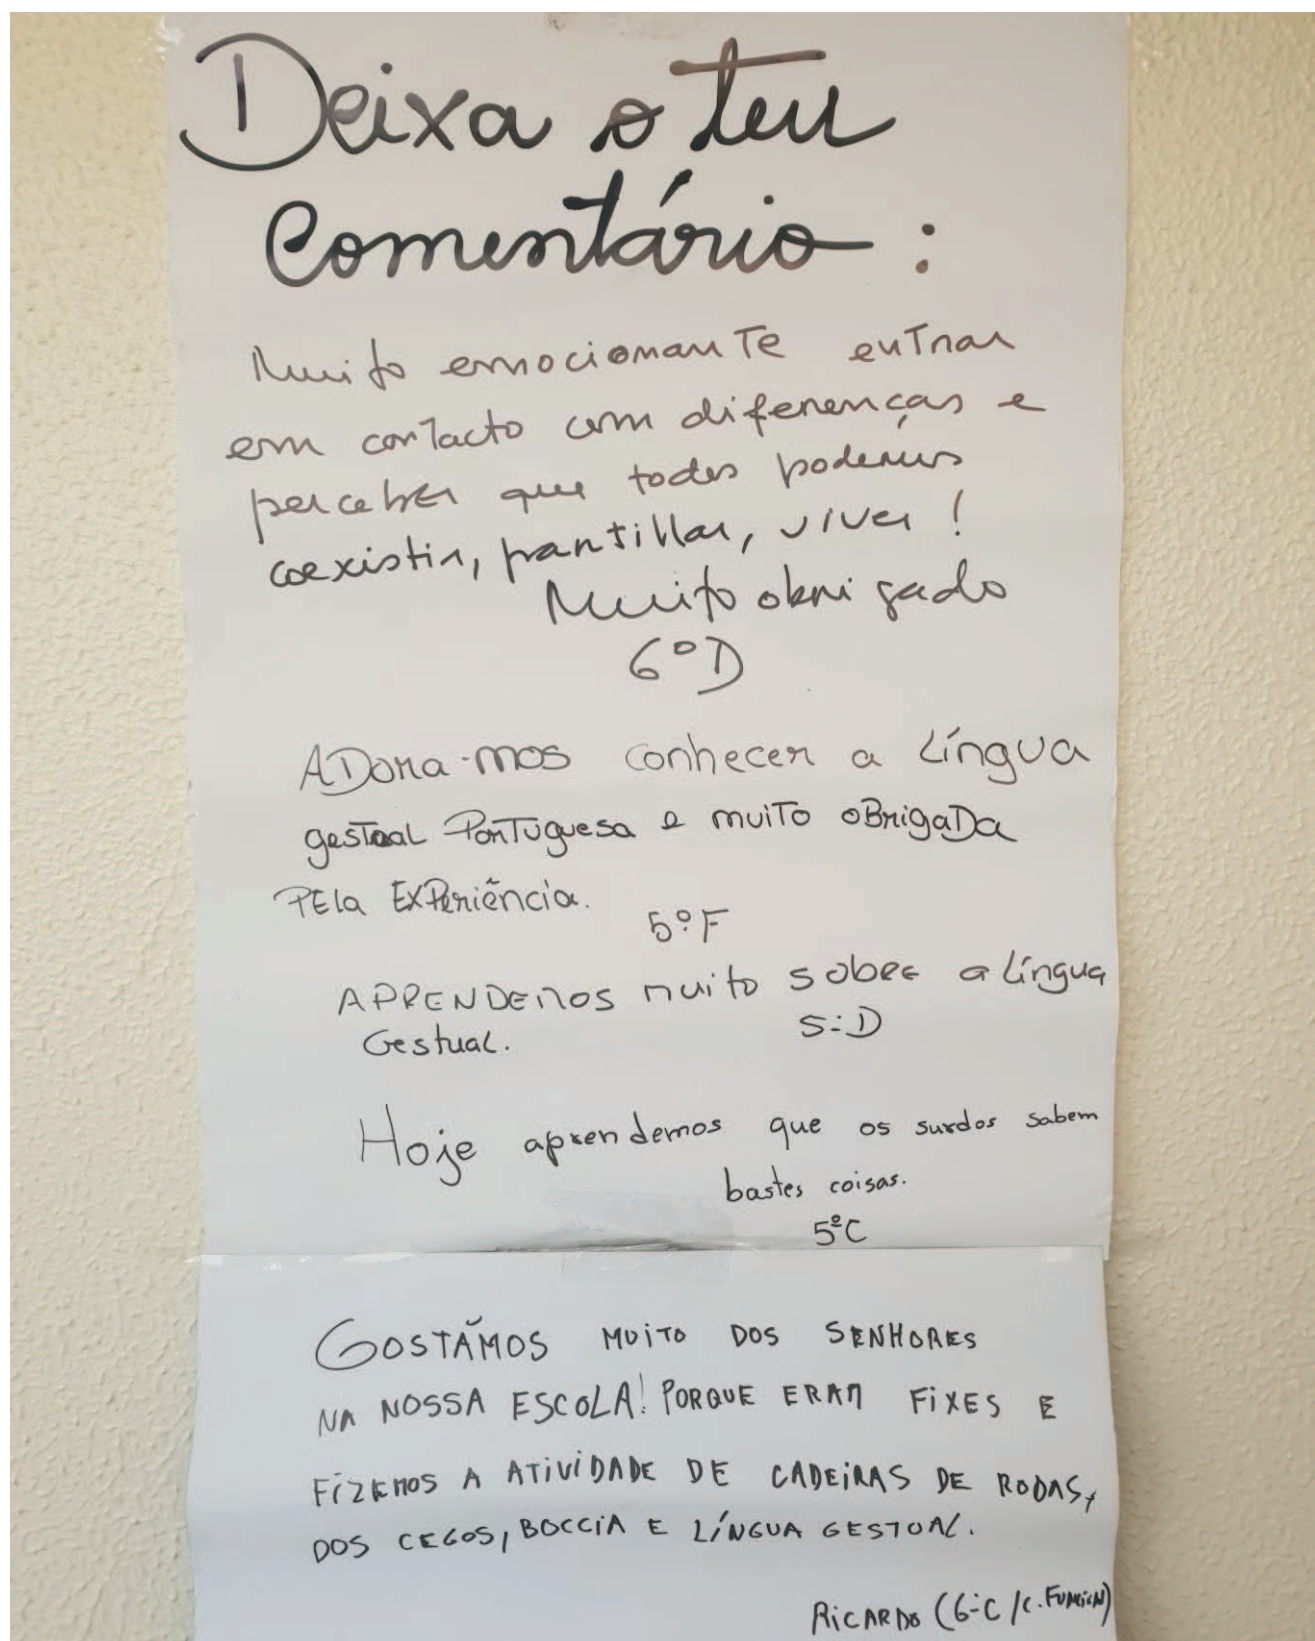 Deixa o teu
Comentário :
Muito emocionante entrar
em contacto com diferenças e
perceber que todos podemos
coexistir, partillar, viver !
Muito obrigado
6º D
ADORA-mos conhecer a Língua
gestual Portuguesa e muito obrigada
PELa EXPeriência.
5º F
APRENDEMOS muito sobre a Língua
Gestual.
5º D
Hoje aprendemos que os surdos sabem
bastes coisas.
5º C
GOSTÃMOS MUITO DOS SENHORES
NA NOSSA ESCOLA! PORQUE ERAM FIXES E
FIZEMOS A ATIVIDADE DE CADEIRAS DE RODAS,
DOS CEGOS, BOCCIA E LÍNGUA GESTUAL.
RICARDO (6º C / C.